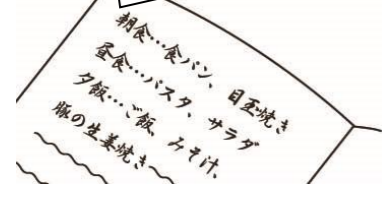 朝食…食パン、目玉焼き
昼食…パスタ、サラダ
夕飯…ご飯、みそ汁、
豚の生姜焼き